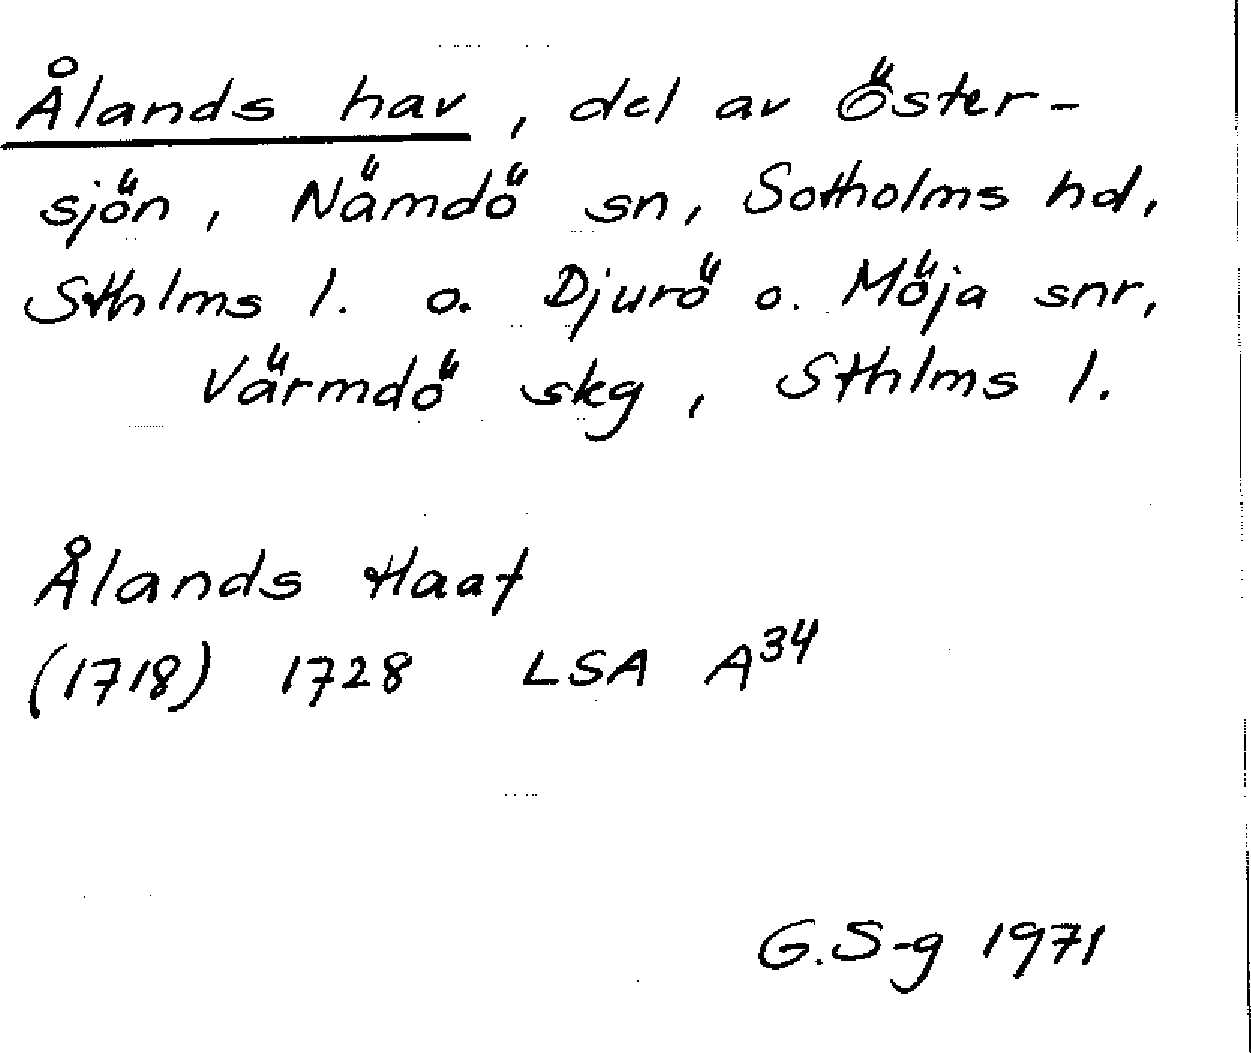 Ålands hav, del av Öster-
sjön, Nämdö sn, Sotholms hd,
Sthlms l. o. Djurö o. Möja snr,
Värmdö skg, Sthlms l.
Ålands Haaf
(1718) 1728 LSA A³⁴
G.S-g 1971